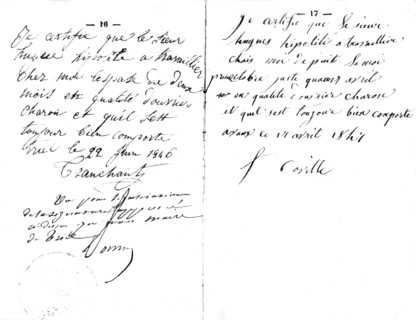 — 16 —
Je certifie que le sieur
hipolite a travailler
Chez moi l'espase de deux
mois en qualité d'ouvrier
charon et quil sett
toujour bien comporte
le 22 Juin 1846
Tranchant
Vu pour
de la signature
maire
de
— 17 —
Je certifie que le sieur
hugues hipolite a travailler
chais moi depuit le moi
octobre juste quamoi avril
en qualité d'ouvrier charon
et quil sest toujour bien comporte
ce 17 avril 1847